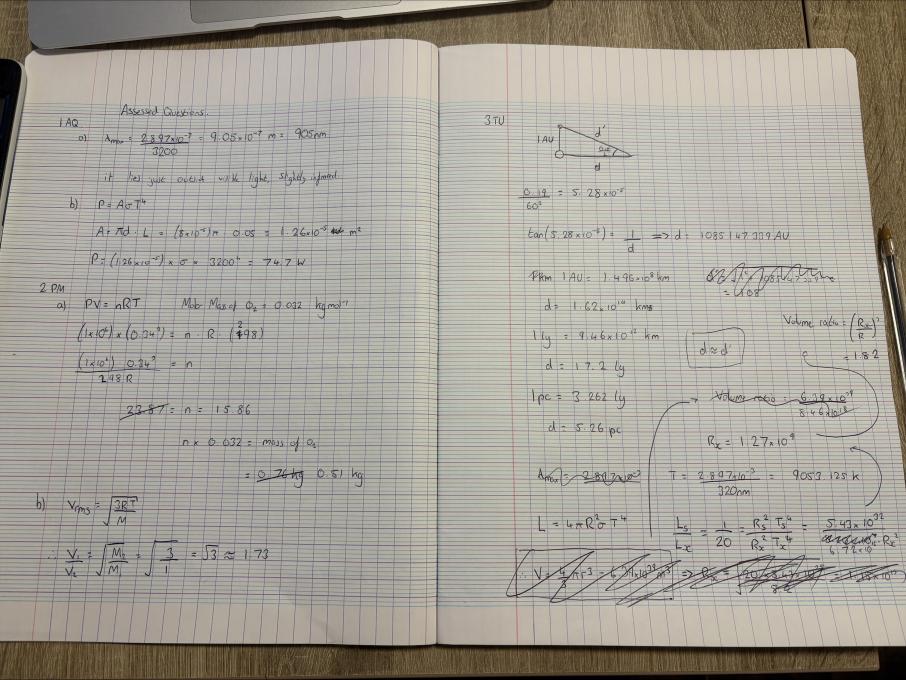 Assessed Questions.
1 AQ
a) λmax = 2.897×10⁻³ / 3200 = 9.05×10⁻⁷ m = 905nm
it lies just outside visible light, slightly infrared.
b) P = AσT⁴
A = πd · L = (8×10⁻⁵)π 0.05 = 1.26×10⁻⁵ m²
P = (1.26×10⁻⁵) × σ × 3200⁴ = 74.7 W
2 PM
a) PV = nRT Molar Mass of O₂ = 0.032 kg mol⁻¹
(1×10⁶) × (0.34³) = n · R · (298)
(1×10⁶) 0.34³ / 298R = n
23.87 = n = 15.86
n × 0.032 = mass of O₂
= 0.76 kg 0.51 kg
b) Vrms = √(3RT / M)
∴ V₁/V₂ = √(M₂/M₁) = √(3/1) = √3 ≈ 1.73
3.TU
1 AU d'
d
0.19 / 60² = 5.28×10⁻⁵
tan(5.28×10⁻⁵) = 1/d => d = 1085147339 AU
1 AU = 1.496×10⁸ km
d = 1.62×10¹⁴ km
1 ly = 9.46×10¹² km
d = 17.2 ly
1pc = 3.262 ly
d = 5.26 pc
d ≈ d'
Volume ratio = (Rx/Rs)³
= 1.82
Volume ratio = 6.39×10⁻²⁷ / 8.46×10¹⁸
Rx = 1.27×10⁹
λmax = 2.897×10⁻³
T = 2.897×10⁻³ / 320nm = 9053.125 k
L = 4πR²σT⁴
Ls/Lx = 1/20 = Rs² Ts⁴ / Rx² Tx⁴ = 5.43×10³² / 6.72×10¹⁵ · Rx²